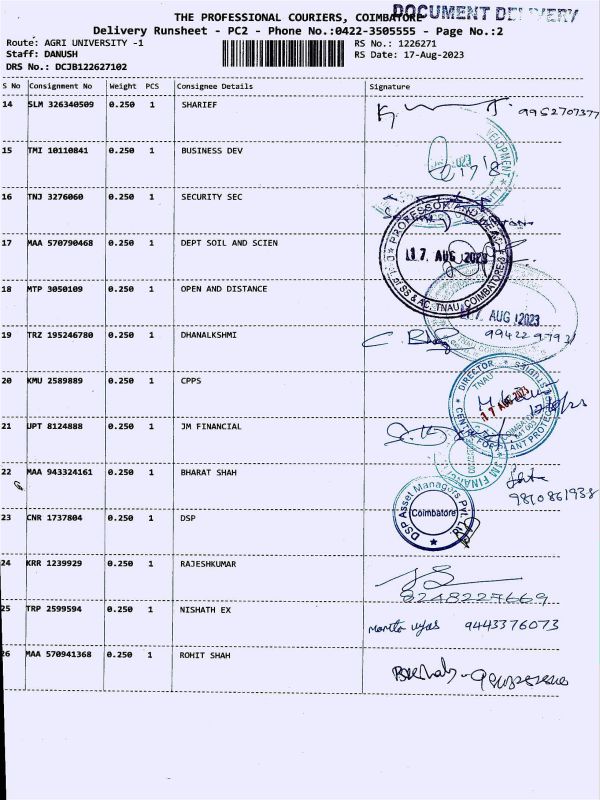 THE PROFESSIONAL COURIERS, COIMBATORE
DOCUMENT DELIVERY
Delivery Runsheet - PC2 - Phone No.:0422-3505555 - Page No.:2
Route: AGRI UNIVERSITY -1
RS No.: 1226271
Staff: DANUSH
RS Date: 17-Aug-2023
DRS No.: DCJB122627102
S No Consignment No Weight PCS Consignee Details Signature
14 SLM 326340509 0.250 1 SHARIEF 9952707377
15 TMI 10110841 0.250 1 BUSINESS DEV
16 TNJ 3276060 0.250 1 SECURITY SEC
17 MAA 570790468 0.250 1 DEPT SOIL AND SCIEN
PROFESSOR AND HEAD
17 AUG 2023
of SS & AC, TNAU, COIMBATORE-3
18 MTP 3050109 0.250 1 OPEN AND DISTANCE
17 AUG 2023
19 TRZ 195246780 0.250 1 DHANALKSHMI
20 KMU 2589889 0.250 1 CPPS
DIRECTOR
TNAU
17 AUG 2023
CENTRE FOR PLANT PROTECTION
21 UPT 8124888 0.250 1 JM FINANCIAL
22 MAA 943324161 0.250 1 BHARAT SHAH 9810861938
23 CNR 1737804 0.250 1 DSP
DSP Asset Managers Pvt. Ltd.
Coimbatore
24 KRR 1239929 0.250 1 RAJESHKUMAR
8248227669
25 TRP 2599594 0.250 1 NISHATH EX 9443376073
26 MAA 570941368 0.250 1 ROHIT SHAH